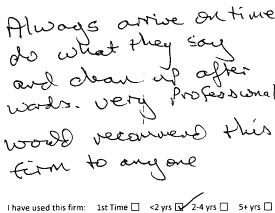 Always arrive on time
do what they say
and clean up after
words. very Professional
would recommend this
firm to anyone
I have used this firm: 1st Time ☐ <2 yrs ☑ 2-4 yrs ☐ 5+ yrs ☐